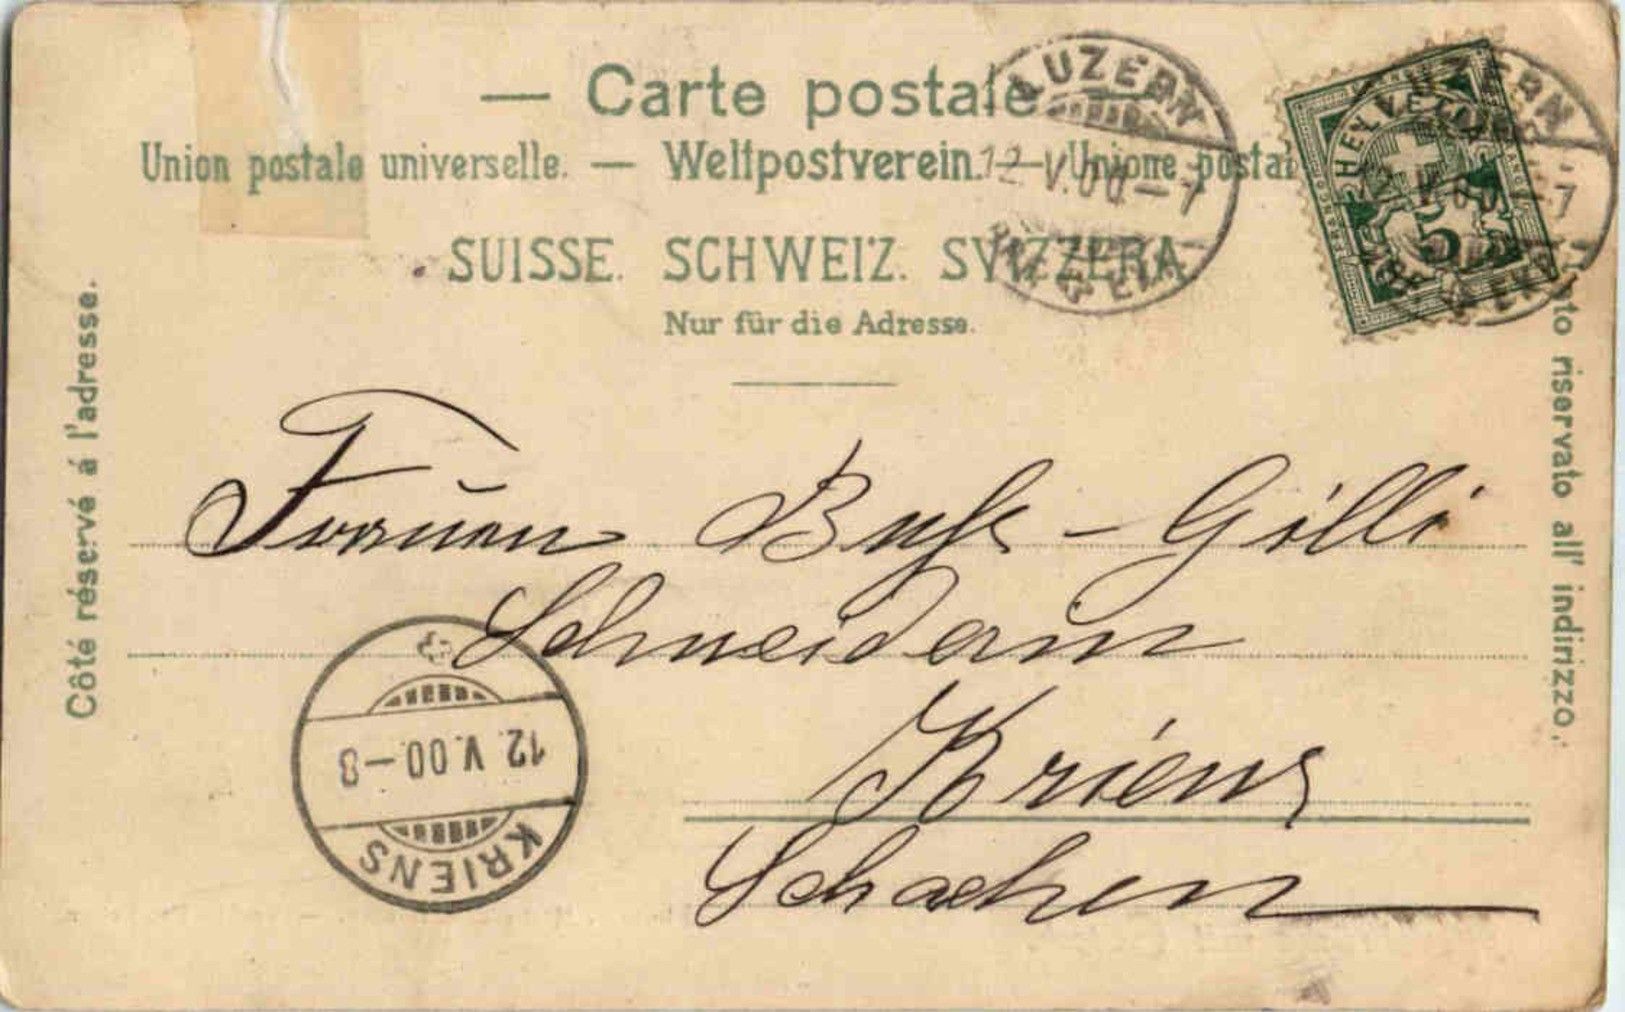 — Carte postale —
Union postale universelle. — Weltpostverein. — Unione postal
SUISSE. SCHWEIZ. SVIZZERA.
Nur für die Adresse.
Côté réservé á l'adresse.
riservato all' indirizzo.
LUZERN
12.V.00-7
LUZERN
HELVETIA
FRANCO
5
Frauen Buſs - Gilli
Schneiderin
Kriens
Schachen
12.V.00-8
KRIENS